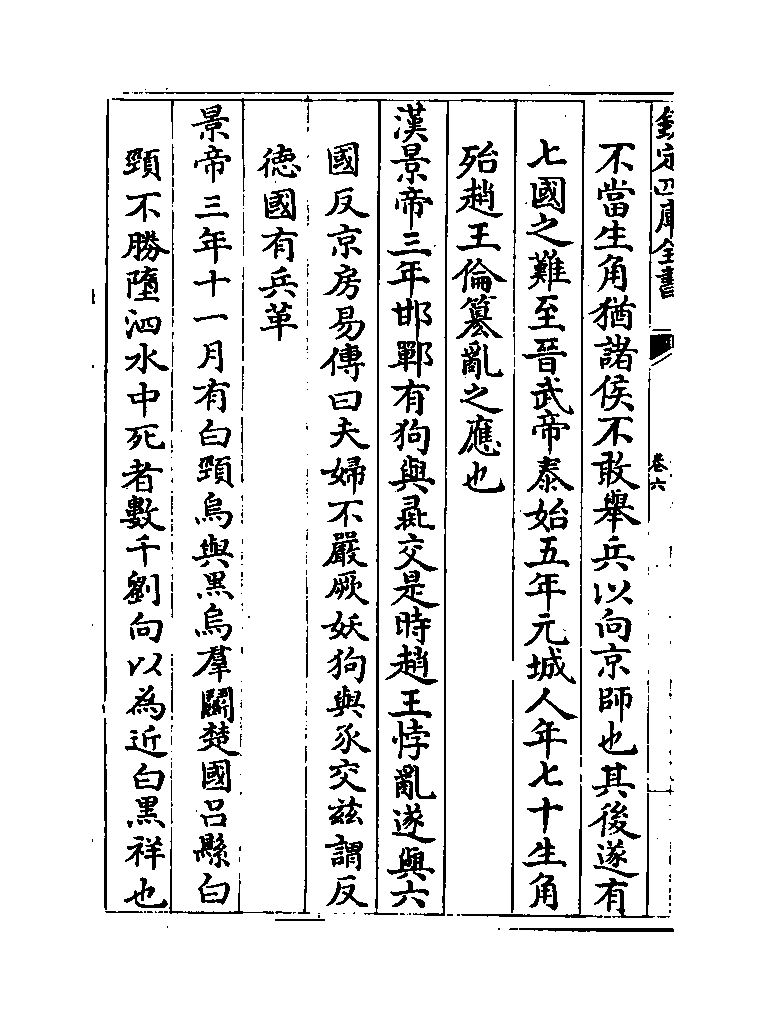 欽定四庫全書
卷六
不當生角猶諸侯不敢舉兵以向京師也其後遂有
七國之難至晉武帝泰始五年元城人年七十生角
殆趙王倫篡亂之應也
漢景帝三年邯鄲有狗與彘交是時趙王悖亂遂與六
國反京房易傳曰夫婦不嚴厥妖狗與豕交兹謂反
徳國有兵革
景帝三年十一月有白頸烏與黒烏羣鬭楚國吕縣白
頸不勝墮泗水中死者數千劉向以為近白黒祥也